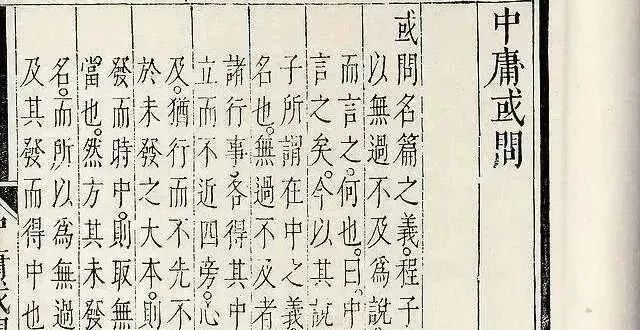 中庸或問
或問名篇之義。程子
以無過不及爲說
而言之。何也。曰。中
言之矣。今以其說
子所謂在中之義
名也。無過不及者
諸行事。各得其中
立而不近四旁。心
及。猶行而不先不
於未發之大本。則
發而時中。則取無
當也。然方其未發
名。而所以為無過
及其發而得中也